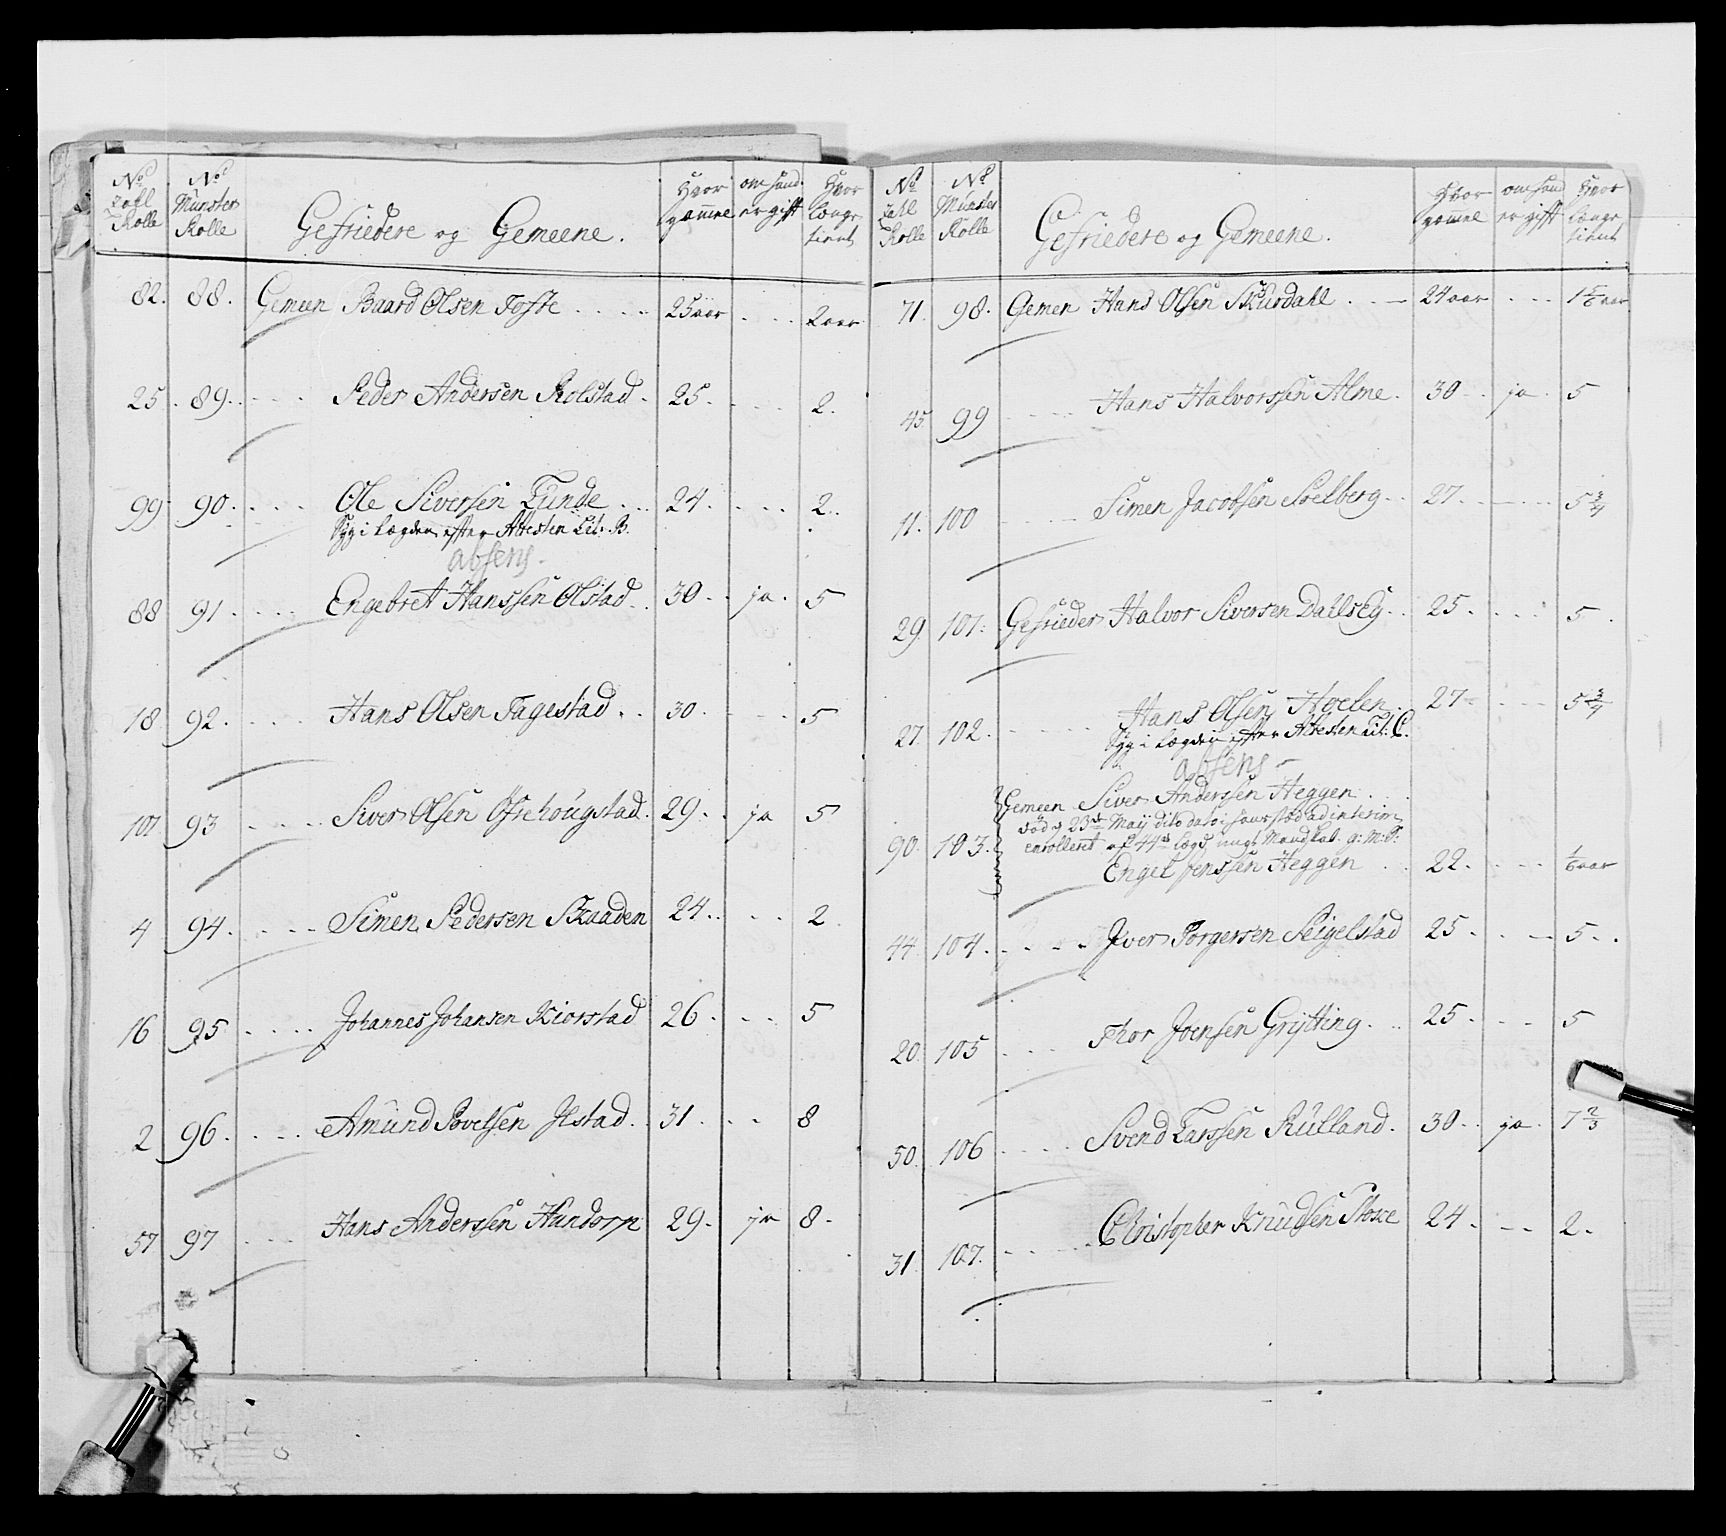 No Tahl Rolle | No Munster Rolle | Gefriedere og Gemeene. | Hvor gamme | om hand er gift | Hvor længe tient
82. 88. Gemeen Baard Olsen Tofte 25 aar 2 aar
25. 89. Peder Andersen Rolstad. 25. 2.
99 90. Ole Siversen Lunde 24. 2.
Syg i Lægden efter Attesten Lit. B.
absens
88 91. Engebret Hanssen Olstad 30. ja. 5
18 92. Hans Olsen Fagestad 30. 5
107 93 Siver Olsen Ofrehougstad. 29. ja 5
4 94. Simen Pedersen Braaden 24. 2
16 95 Johannes Johansen Kiorstad 26. 5
2 96. Amund Povelsen Ilstad. 31. 8
57 97 Hans Anderssen Handorp 29. ja 8.
No Tahl Rolle | No Munster Rolle | Gefriedere og Gemeene. | Hvor gamme | om hand er gifft | Hvor længe tient
71. 98. Gemen Hans Olsen Skurdahl 24 aar 1 5/6 aar
45. 99 Hans Halvorssen Alme. 30 ja. 5
11. 100 Simen Jacobsen Soelberg 27. 5 3/4
29. 101. Gefrieder Halvor Siversen Dahlseg 25. 5
27. 102. Hans Olsen Hoelen 27 5 3/4
Syg i Lægden efter Attesten Lit: C.
absens
Gemeen Siver Anderssen Heggen
død d 23de Maij dito dato i hans stæd ad interim
90. 103. enrolleret af 44de Lægd ungt Mandskab. g: M: R:
Engel Jenssen Heggen 22. 1/6 aar
44. 104. Iver Torgersen Seigelstad 25. 5
20. 105 Thor Joensen Grytting. 25. 5
50. 106 Svend Larssen Rulland. 30. ja. 7 2/3
31. 107. Christopher Knudsen Stoxe 24. 2.